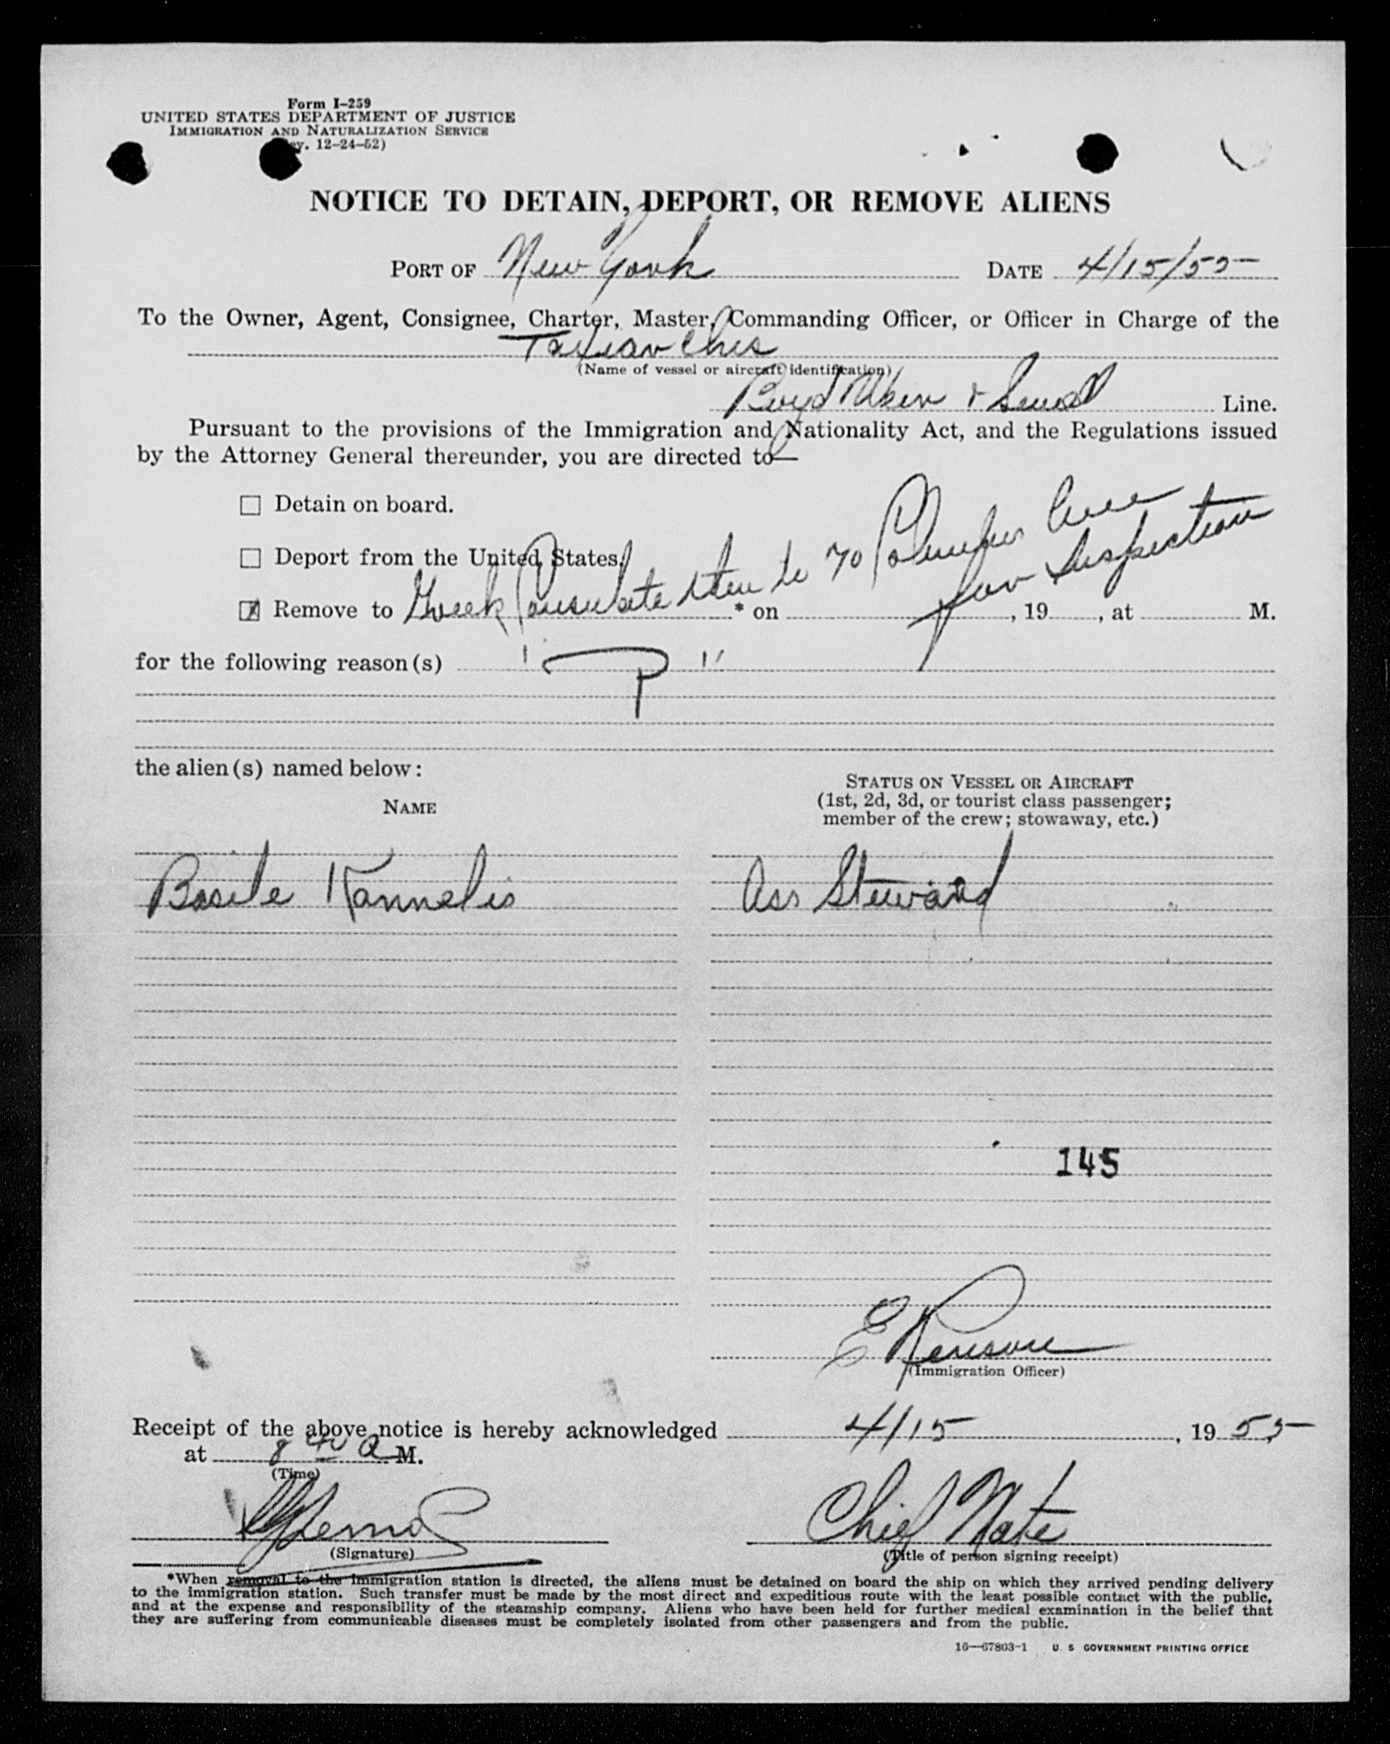 Form I-259
UNITED STATES DEPARTMENT OF JUSTICE
IMMIGRATION AND NATURALIZATION SERVICE
12-24-52)
NOTICE TO DETAIN, DEPORT, OR REMOVE ALIENS
PORT OF New York DATE 4/15/55
To the Owner, Agent, Consignee, Charter, Master, Commanding Officer, or Officer in Charge of the
Taxiarchis
(Name of vessel or aircraft identification)
Boyd & Line.
Pursuant to the provisions of the Immigration and Nationality Act, and the Regulations issued
by the Attorney General thereunder, you are directed to—
☐ Detain on board.
☐ Deport from the United States.
☒ Remove to Greek Consulate then to 70 Columbus Ave for Inspection * on , 19 , at M.
for the following reason(s) "P"
the alien(s) named below:
NAME
STATUS ON VESSEL OR AIRCRAFT
(1st, 2d, 3d, or tourist class passenger;
member of the crew; stowaway, etc.)
Basile Kannelis Ass Steward
145
(Immigration Officer)
Receipt of the above notice is hereby acknowledged 4/15, 19 55
at 8 40 A M.
(Time)
Chief Mate
(Signature) (Title of person signing receipt)
*When removal to the immigration station is directed, the aliens must be detained on board the ship on which they arrived pending delivery
to the immigration station. Such transfer must be made by the most direct and expeditious route with the least possible contact with the public,
and at the expense and responsibility of the steamship company. Aliens who have been held for further medical examination in the belief that
they are suffering from communicable diseases must be completely isolated from other passengers and from the public.
16—67803-1 U. S. GOVERNMENT PRINTING OFFICE